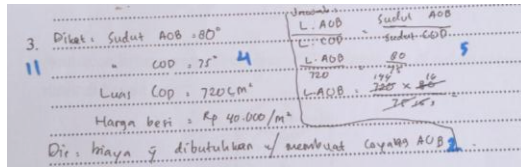 3. Diket : Sudut AOB = 80°
11
" COD = 75° 4
Luas COD = 720 cm²
Harga besi = Rp 40.000/m²
Dit : biaya yg dibutuhkan u/ membuat AOB 2
Jawab :
L. AOB / L. COD = Sudut AOB / Sudut COD 5
L. AOB / 720 = 80 / 75
L. AOB = 720 × 80 / 75 =
144 16